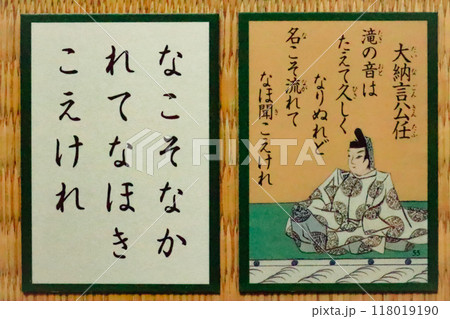 なこそなか
れてなほき
こえけれ
大納言公任
滝の音は
たえて久しく
なりぬれど
名こそ流れて
なほ聞こえけれ
55
118019190